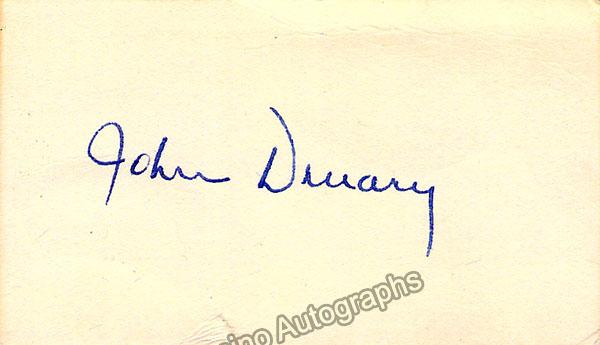 John Druary
ino Autographs